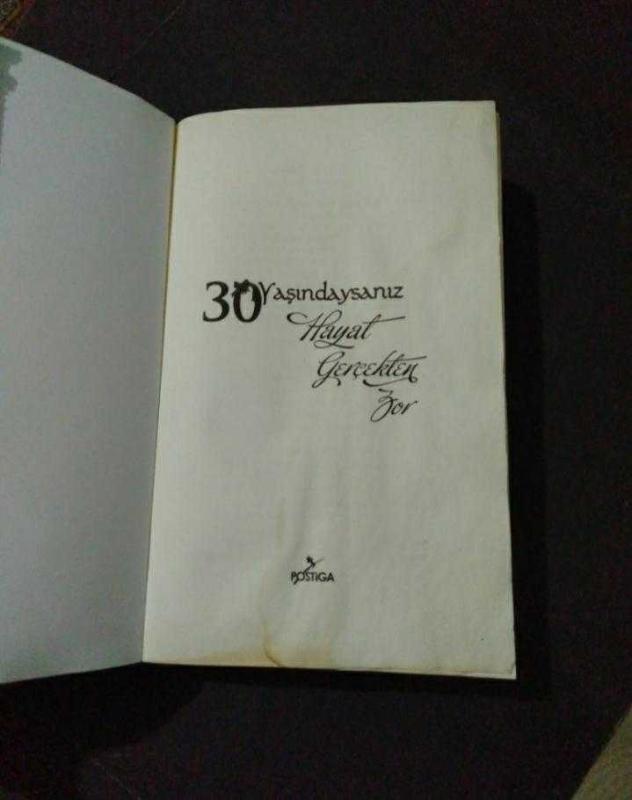 30 Yaşındaysanız
Hayat
Gerçekten
Zor
POSTİGA